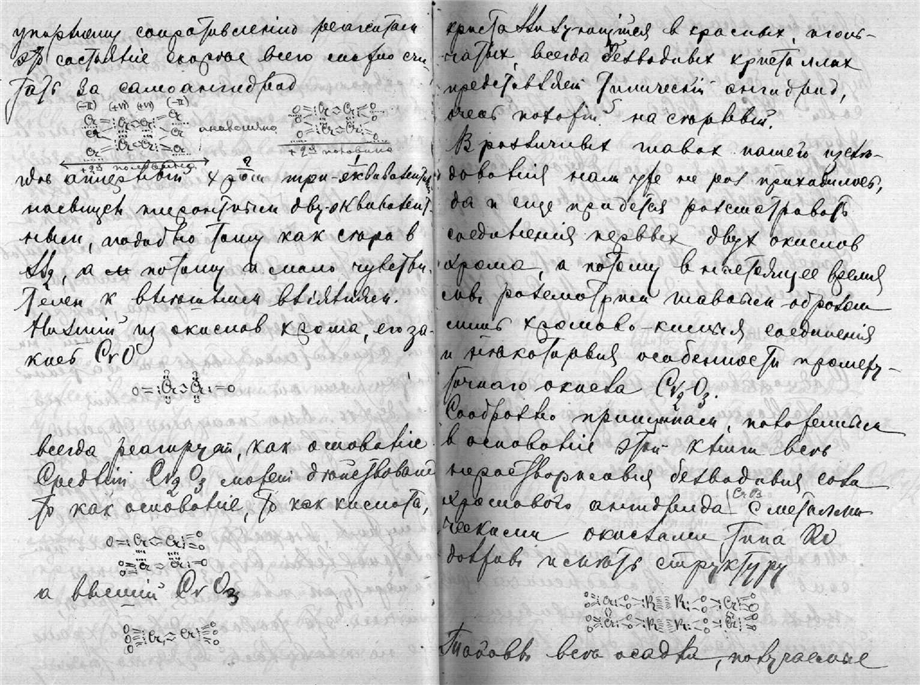 упорному сопротивлению реагентам
это состояніе скорѣе всего можно счи-
тать за самоангидрид
(-II) (+VI) (+VI) (-II)
аналогично
+ 2я половина
+ 2я половина
гдѣ хром три-эквивалентный
насыщен дву-эквивалент-
ным, подобно тому как сѣра в
а потому и мало чувстви-
телен к внѣшним вліяніям.
Низшій из окислов хрома, его за-
кись CrO
O=Cr>Cr=O
всегда реагирует, как основаніе
Средній Cr2O3 может дѣйствовать
то как основаніе, то как кислота,
а высшій CrO3
кристаллизующійся в красных, иголь-
чатых, всегда безводных кристаллах
представляет типическій ангидрид,
очень похожій на сѣрный.
В различных главах нашего изслѣ-
дованія нам уже не раз приходилось,
да и еще придется разсматривать
соединенія первых двух окислов
хрома, а потому в настоящее время
мы разсмотрим главным образом
лишь хромово-кислыя соединенія
и нѣкоторыя особенности промежу-
точнаго окисла Cr2O3.
Сообразно принципам, положенным
в основаніе этой книги всѣ
нерастворимыя безводныя соли
хромового ангидрида CrO3 с металли-
ческими окислами типа RO
должны имѣть структуру
Таковы всѣ осадки, получаемые